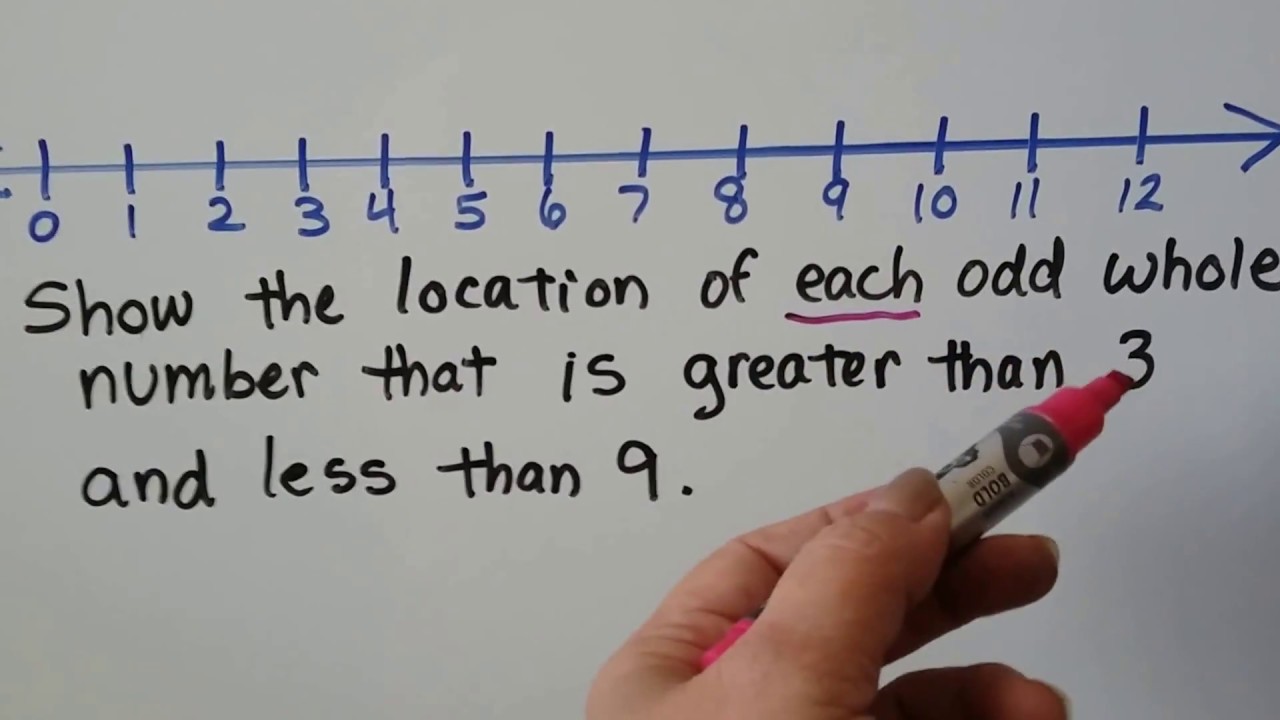 0 1 2 3 4 5 6 7 8 9 10 11 12
Show the location of each odd whole
number that is greater than 3
and less than 9.
BOLD
COLOR